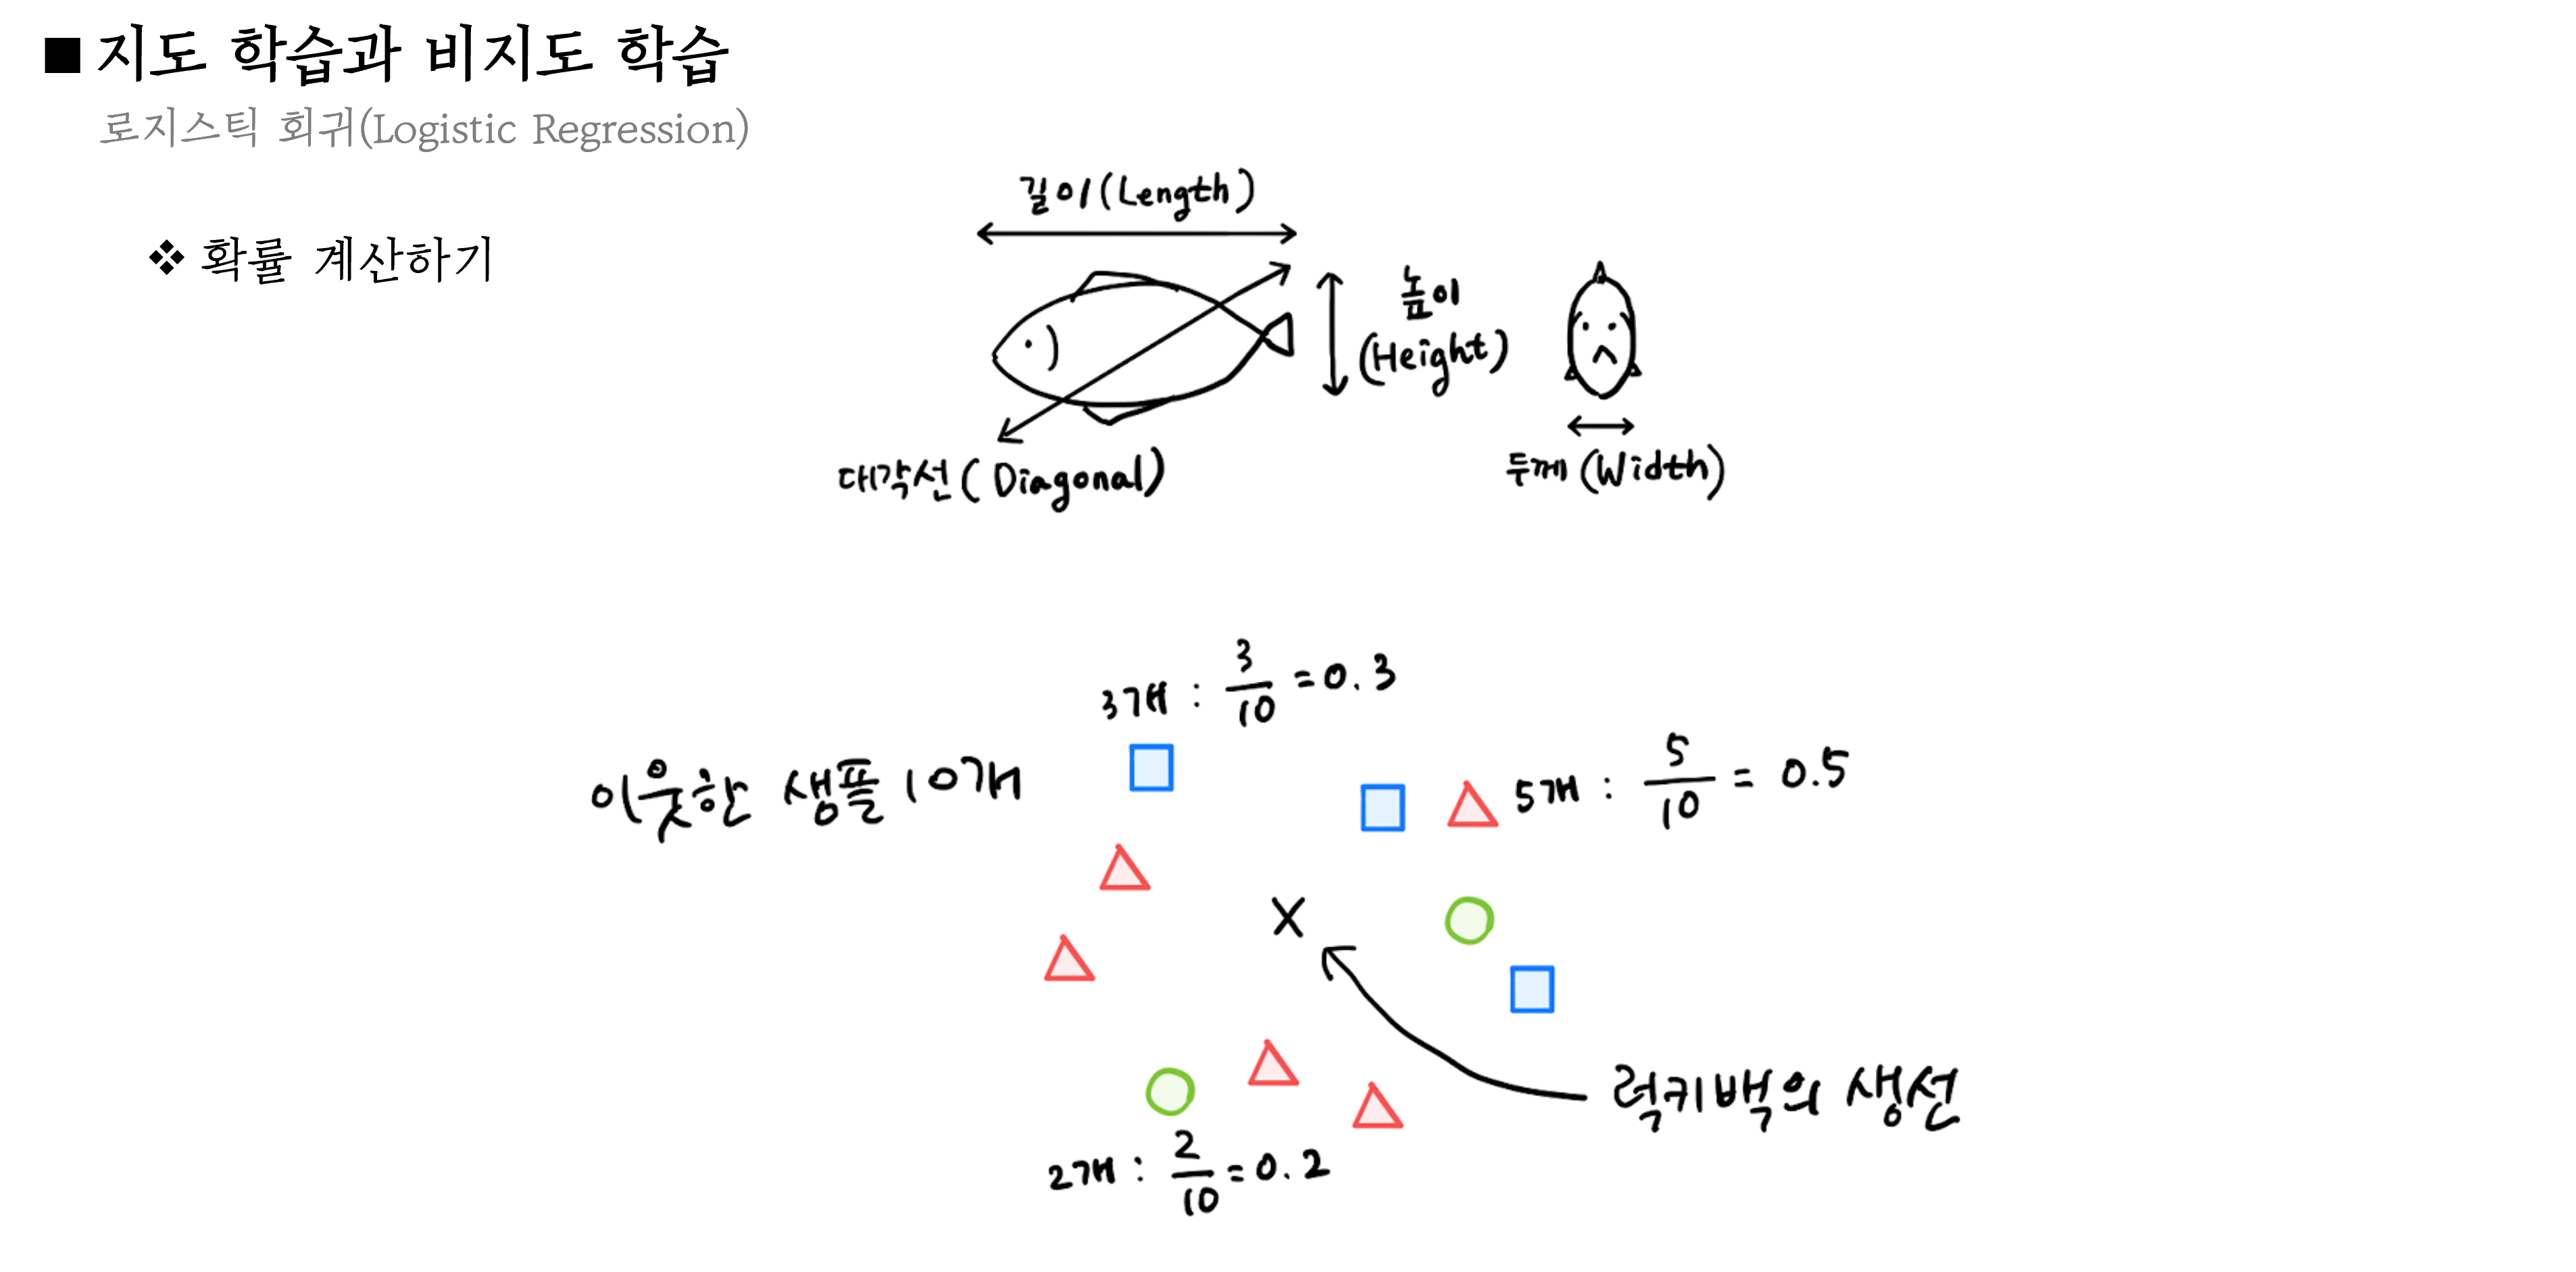 ■ 지도 학습과 비지도 학습
로지스틱 회귀(Logistic Regression)
❖ 확률 계산하기
길이(Length)
높이
(Height)
대각선(Diagonal)
두께(Width)
3개 : 3/10 = 0.3
이웃한 샘플 10개
5개 : 5/10 = 0.5
X
럭키백의 생선
2개 : 2/10 = 0.2